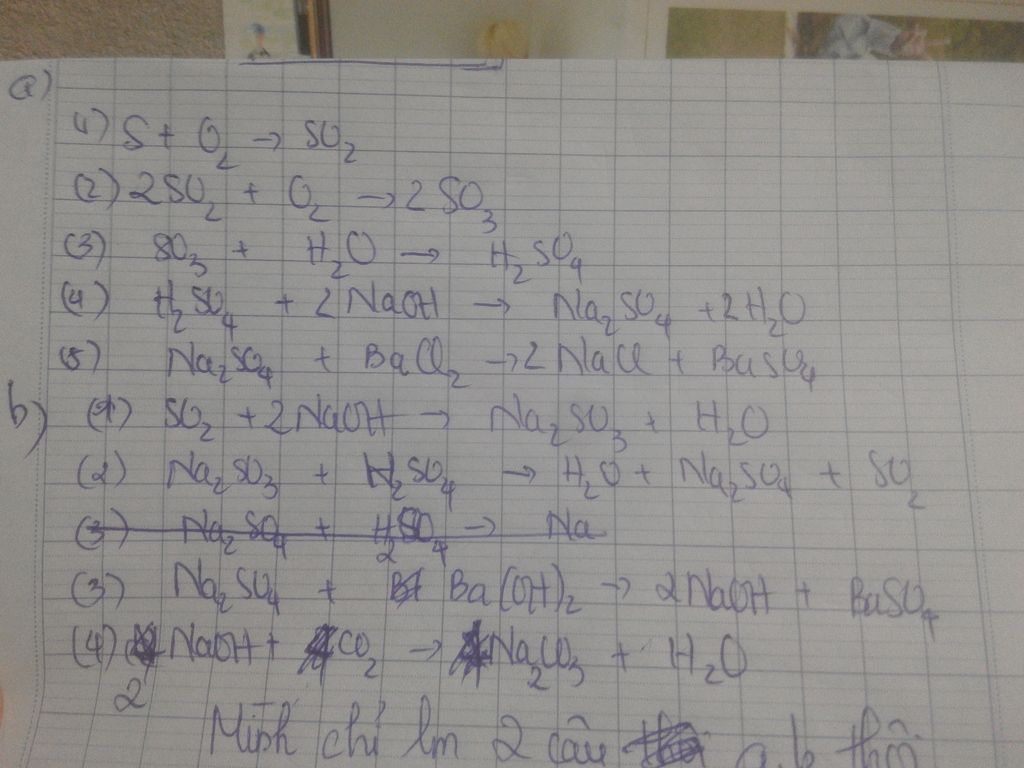 a)
1) S + O2 → SO2
(2) 2SO2 + O2 → 2SO3
(3) SO3 + H2O → H2SO4
(4) H2SO4 + 2NaOH → Na2SO4 + 2H2O
(5) Na2SO4 + BaCl2 → 2NaCl + BaSO4
b) (1) SO2 + 2NaOH → Na2SO3 + H2O
(2) Na2SO3 + H2SO4 → H2O + Na2SO4 + SO2
(3) Na2SO4 + H2SO4 → Na
(3) Na2SO4 + Ba(OH)2 → 2NaOH + BaSO4
(4) 2NaOH + CO2 → Na2CO3 + H2O
Mình chỉ lm 2 câu a, b thôi